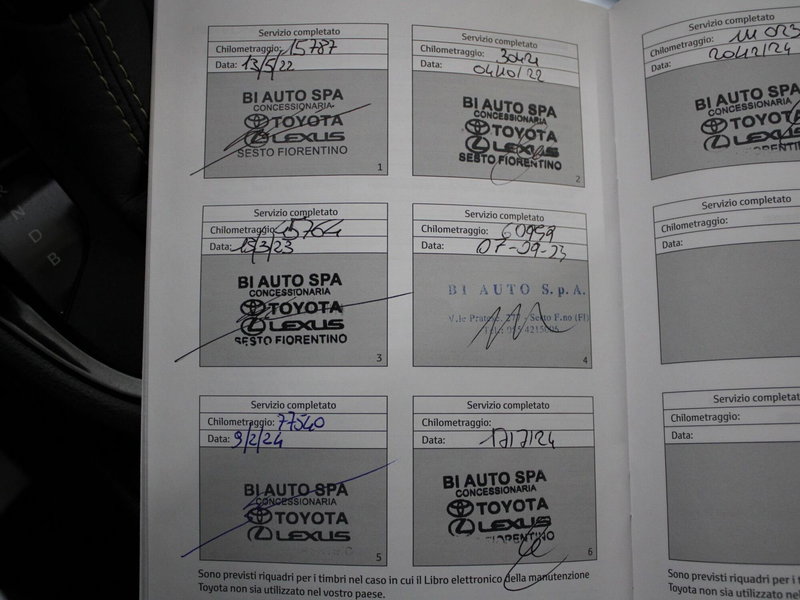 Servizio completato
Chilometraggio: 15787
Data: 13/5/22
BI AUTO SPA
CONCESSIONARIA
TOYOTA
LEXUS
SESTO FIORENTINO
1
Servizio completato
Chilometraggio:
Data: 04/10/22
BI AUTO SPA
CONCESSIONARIA
TOYOTA
LEXUS
SESTO FIORENTINO
2
Servizio completato
Chilometraggio:
Data:
BI AUTO SPA
CONCESSIONARIA
TOYOTA
LEXUS
Servizio completato
Chilometraggio: 45764
Data: 13/3/23
BI AUTO SPA
CONCESSIONARIA
TOYOTA
LEXUS
SESTO FIORENTINO
3
Servizio completato
Chilometraggio: 60999
Data: 07-09-23
BI AUTO S.p.A.
V.le Pratese, - Sesto F.no (FI)
4
Servizio completato
Chilometraggio:
Data:
Servizio completato
Chilometraggio: 77540
Data: 9/2/24
BI AUTO SPA
CONCESSIONARIA
TOYOTA
LEXUS
5
Servizio completato
Chilometraggio:
Data: 17/7/24
BI AUTO SPA
CONCESSIONARIA
TOYOTA
LEXUS
FIORENTINO
6
Servizio completato
Chilometraggio:
Data:
Sono previsti riquadri per i timbri nel caso in cui il Libro elettronico della manutenzione
Toyota non sia utilizzato nel vostro paese.
Sono previsti riquadri per i tim
Toyota non sia utilizzato nel vo
N
D
B